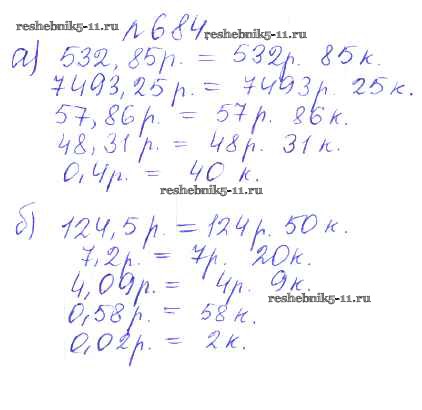 reshebnik5-11.ru
№684
reshebnik5-11.ru
а) 532,85р. = 532р. 85к.
7493,25р. = 7493р. 25к.
57,86р. = 57р. 86к.
48,31р. = 48р. 31к.
0,4р. = 40к.
reshebnik5-11.ru
б) 124,5р. = 124р. 50к.
7,2р. = 7р. 20к.
4,09р. = 4р. 9к.
reshebnik5-11.ru
0,58р. = 58к.
0,02р. = 2к.